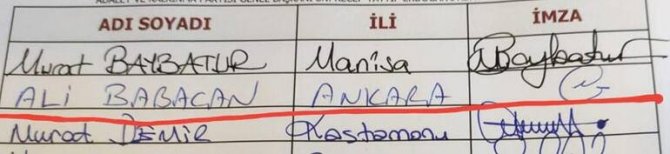 ADI SOYADI İLİ İMZA
Murat BAYBATUR Manisa MBaybatur
ALİ BABACAN ANKARA
Murat DEMİR Kastamonu